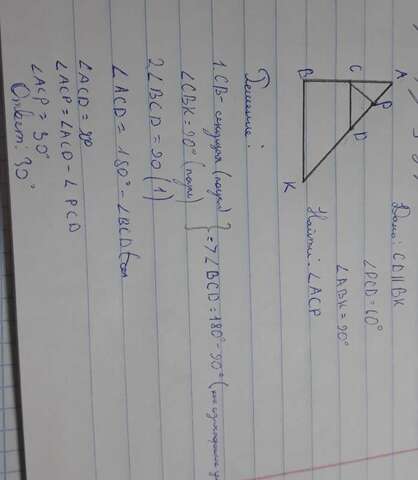 Дано: CD || BK
∠PCD = 60°
∠ABK = 90°
Найти: ∠ACP
A
C
B
P
D
K
Решение:
1. CB - секущая (по усл) } => ∠BCD = 180° - 90° (как
∠CBK = 90° (по усл)
2 ∠BCD = 90 (1)
∠ACD = 180° - ∠BCD (
∠ACD = 90
∠ACP = ∠ACD - ∠PCD
∠ACP = 30°
Ответ: 30°